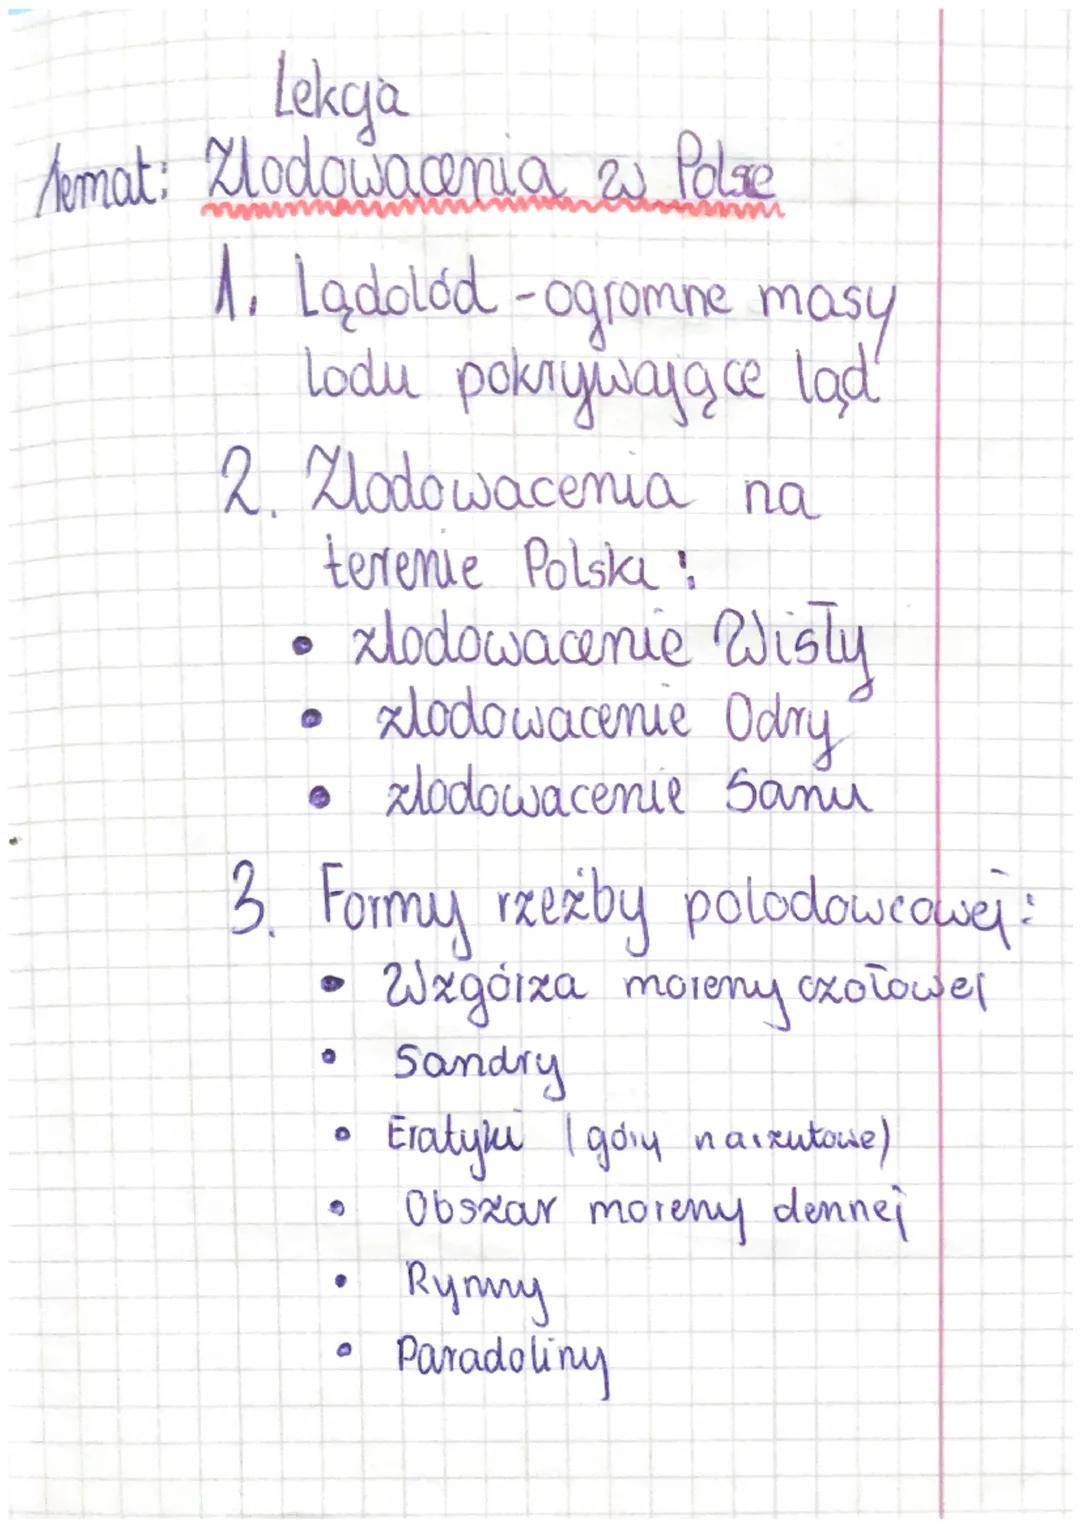 Lekcja
Temat: Zlodowacenia w Polsce
1. Lądolód - ogromne masy
lodu pokrywające ląd
2. Zlodowacenia na
terenie Polski:
• zlodowacenie Wisły
• zlodowacenie Odry
• zlodowacenie Sanu
3. Formy rzeźby polodowcowej:
• Wzgórza moreny czołowej
• Sandry
• Eratyki (góry narzutowe)
• Obszar moreny dennej
• Rynny
• Paradoliny